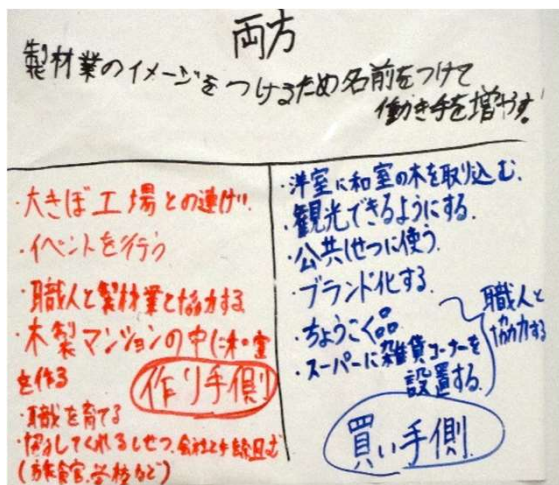 両方
製材業のイメージをつけるため名前をつけて
働き手を増やす。
・大きぼ工場との連けい
・イベントを行う
・職人と製材業と協力する
・木製マンションの中に和室
を作る
作り手側
・職を育てる
・協力してくれるしせつ、会社と手を組む
(旅館、学校など)
・洋室に和室の木を取り込む。
・観光できるようにする。
・公共しせつに使う。
・ブランド化する。
・ちょうこく品
・スーパーに雑貨コーナーを
設置する。
職人と
協力する
買い手側